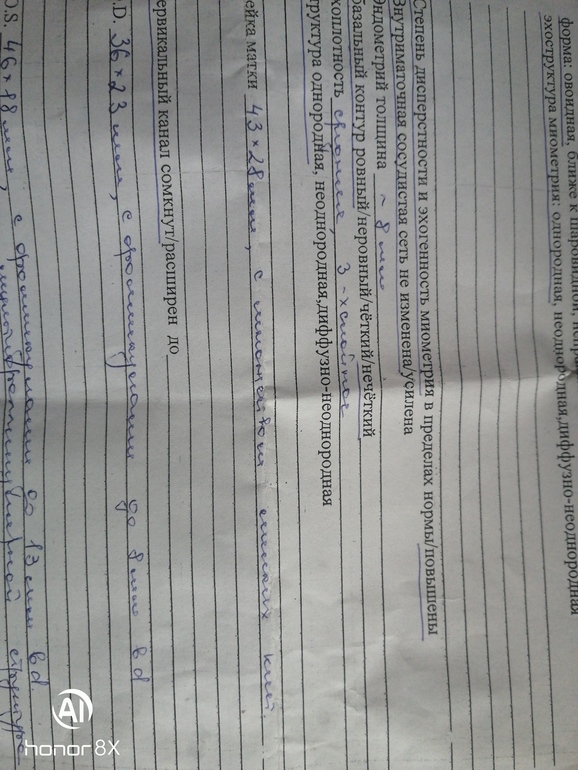 форма: овоидная, ближе к шаровидной,
эхоструктура миометрия: однородная, неоднородная, диффузно-неоднородная
Степень дисперстности и эхогенность миометрия в пределах нормы/повышены
Внутриматочная сосудистая сеть не изменена/усилена
Эндометрий толщина ~ 8 мм
базальный контур ровный/неровный/чёткий/нечёткий
хоплотность средняя, 3-хслойное
труктура однородная, неоднородная,диффузно-неоднородная
ейка матки 43×28 мм, с кист.
ервикальный канал сомкнут/расширен до
.D. 36×23 мм, с фолликулами до 8 мм в d
O.S. 46×18 мм, с фолликулами до 13 мм в d.
мультифолликулярной структуры
AI
honor 8X